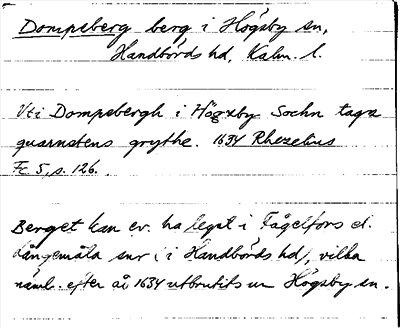 Dompeberg berg i Högsby sn,
Handbörds hd, Kalm. l.
Vti Dompebergh i Högxby Sochn taga
quarnstens grythe. 1634 Rhezelius
Fc 5, s. 126.
Berget kan ev. ha legat i Fågelfors el.
Långemåla snr (i Handbörds hd), vilka
näml. efter år 1634 utbrutits ur Högsby sn.